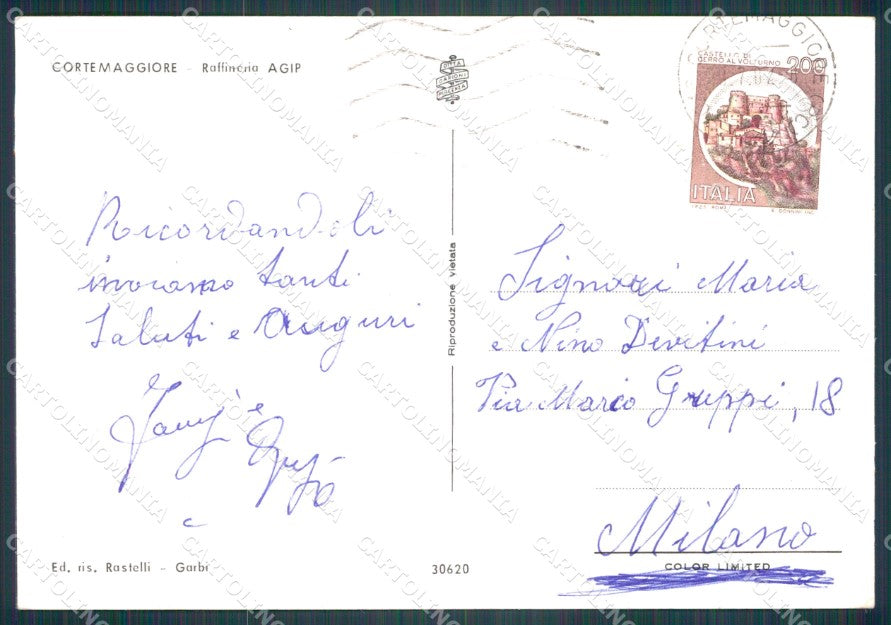 CORTEMAGGIORE - Raffineria AGIP
CITTA
CARTOLINOMANIA
CASTELLO DI
CERRO AL VOLTURNO
200
ITALIA
Ricordandoli
inviamo tanti
saluti e Auguri
e
Signori Maria
e Nino Devitini
Via Mario Greppi, 18
Milano
Riproduzione vietata
Ed. ris. Rastelli - Garbi
30620
COLOR LIMITED